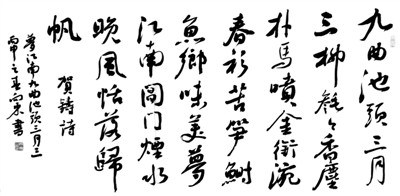 九曲池頭三月
三柳毿々香塵
扑馬噴金銜涴
春衫苦笋鰣
魚鄉味美夢
江南閶門煙水
晚風恬落歸
帆 賀鑄詩
夢江南九曲池頭三月三
丙申之春 書